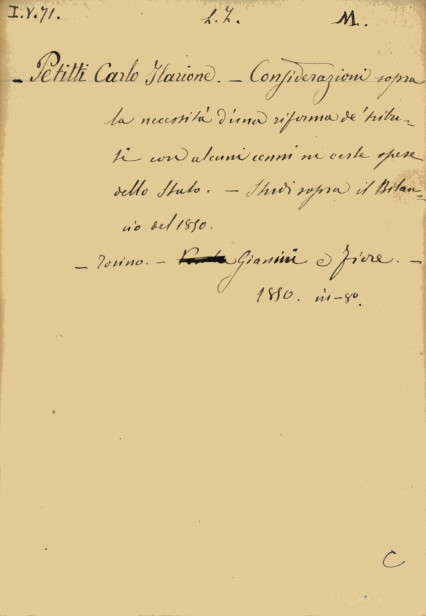 I.V.71. L.Z. M.
— Petitti Carlo Ilarione. — Considerazioni sopra
la necessità d'una riforma de' tribu-
ti con alcuni cenni su certe spese
dello Stato. — Studi sopra il Bilan-
cio del 1850.
— Torino. — Giannini e Fiore. —
1850. in-8°.
C